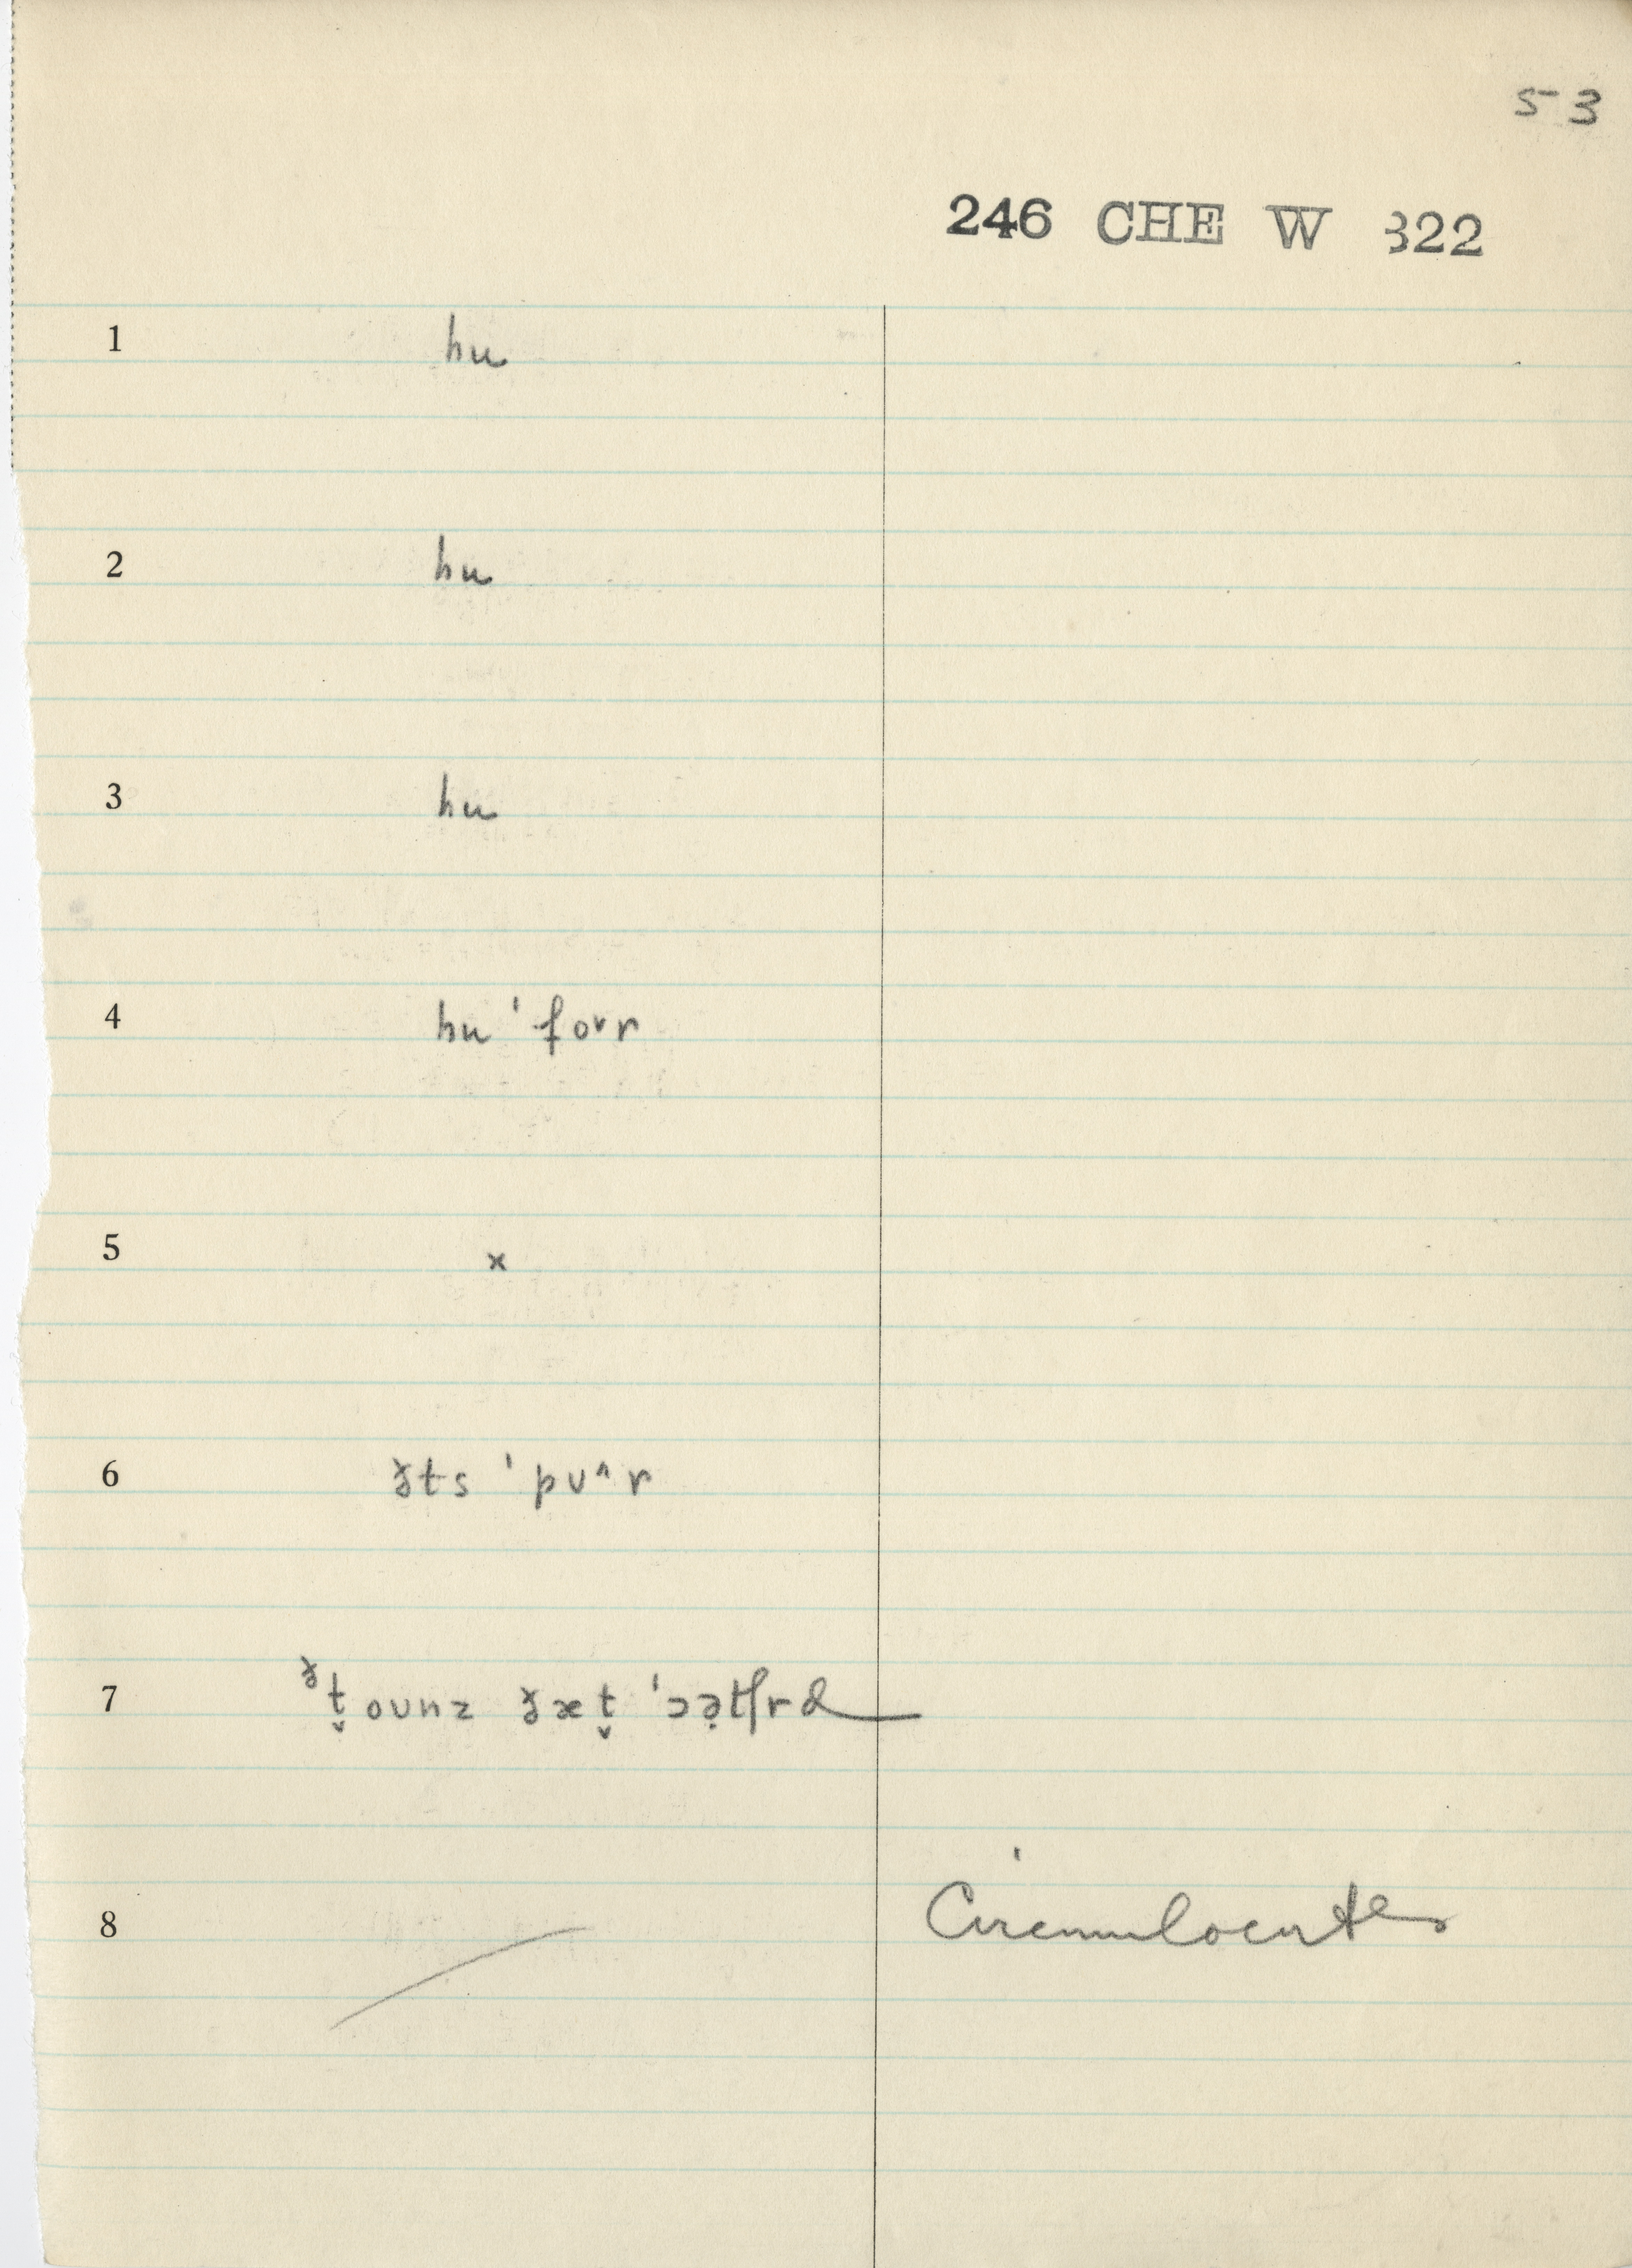 53
246 CHE W 322
1 hu
2 hu
3 hu
4 hu ˈfoᵛr
5 x
6 ðəts ˈpʊ^r
7 ət̬oʊnz ðæt̬ ˈɔə̣tʃrd
8 Circumlocutes